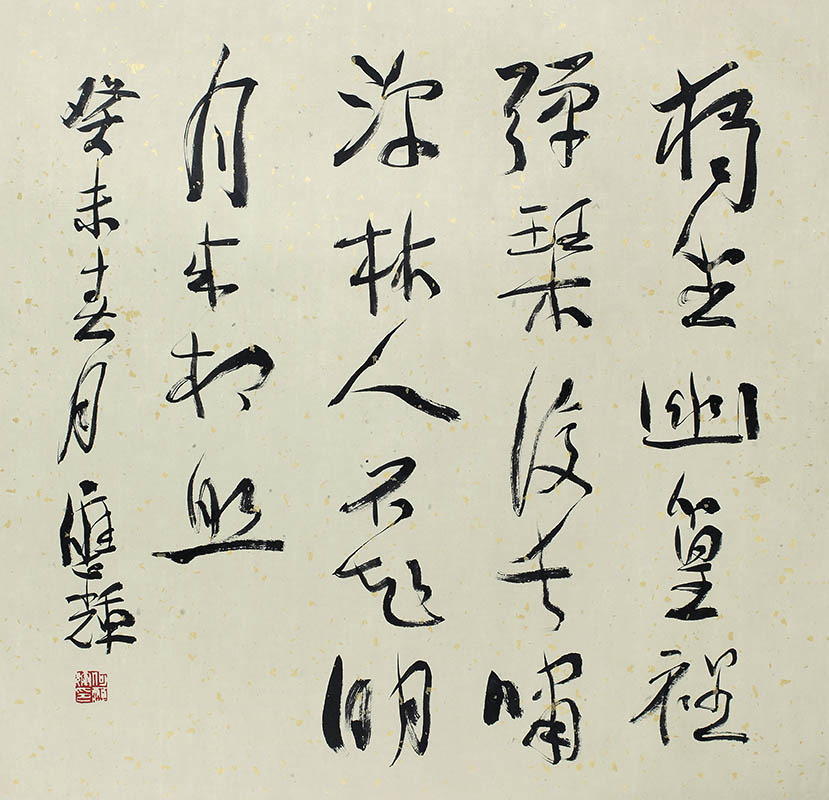 獨坐幽篁裡
彈琴復長嘯
深林人不知明
月来相照
癸未春月應輝